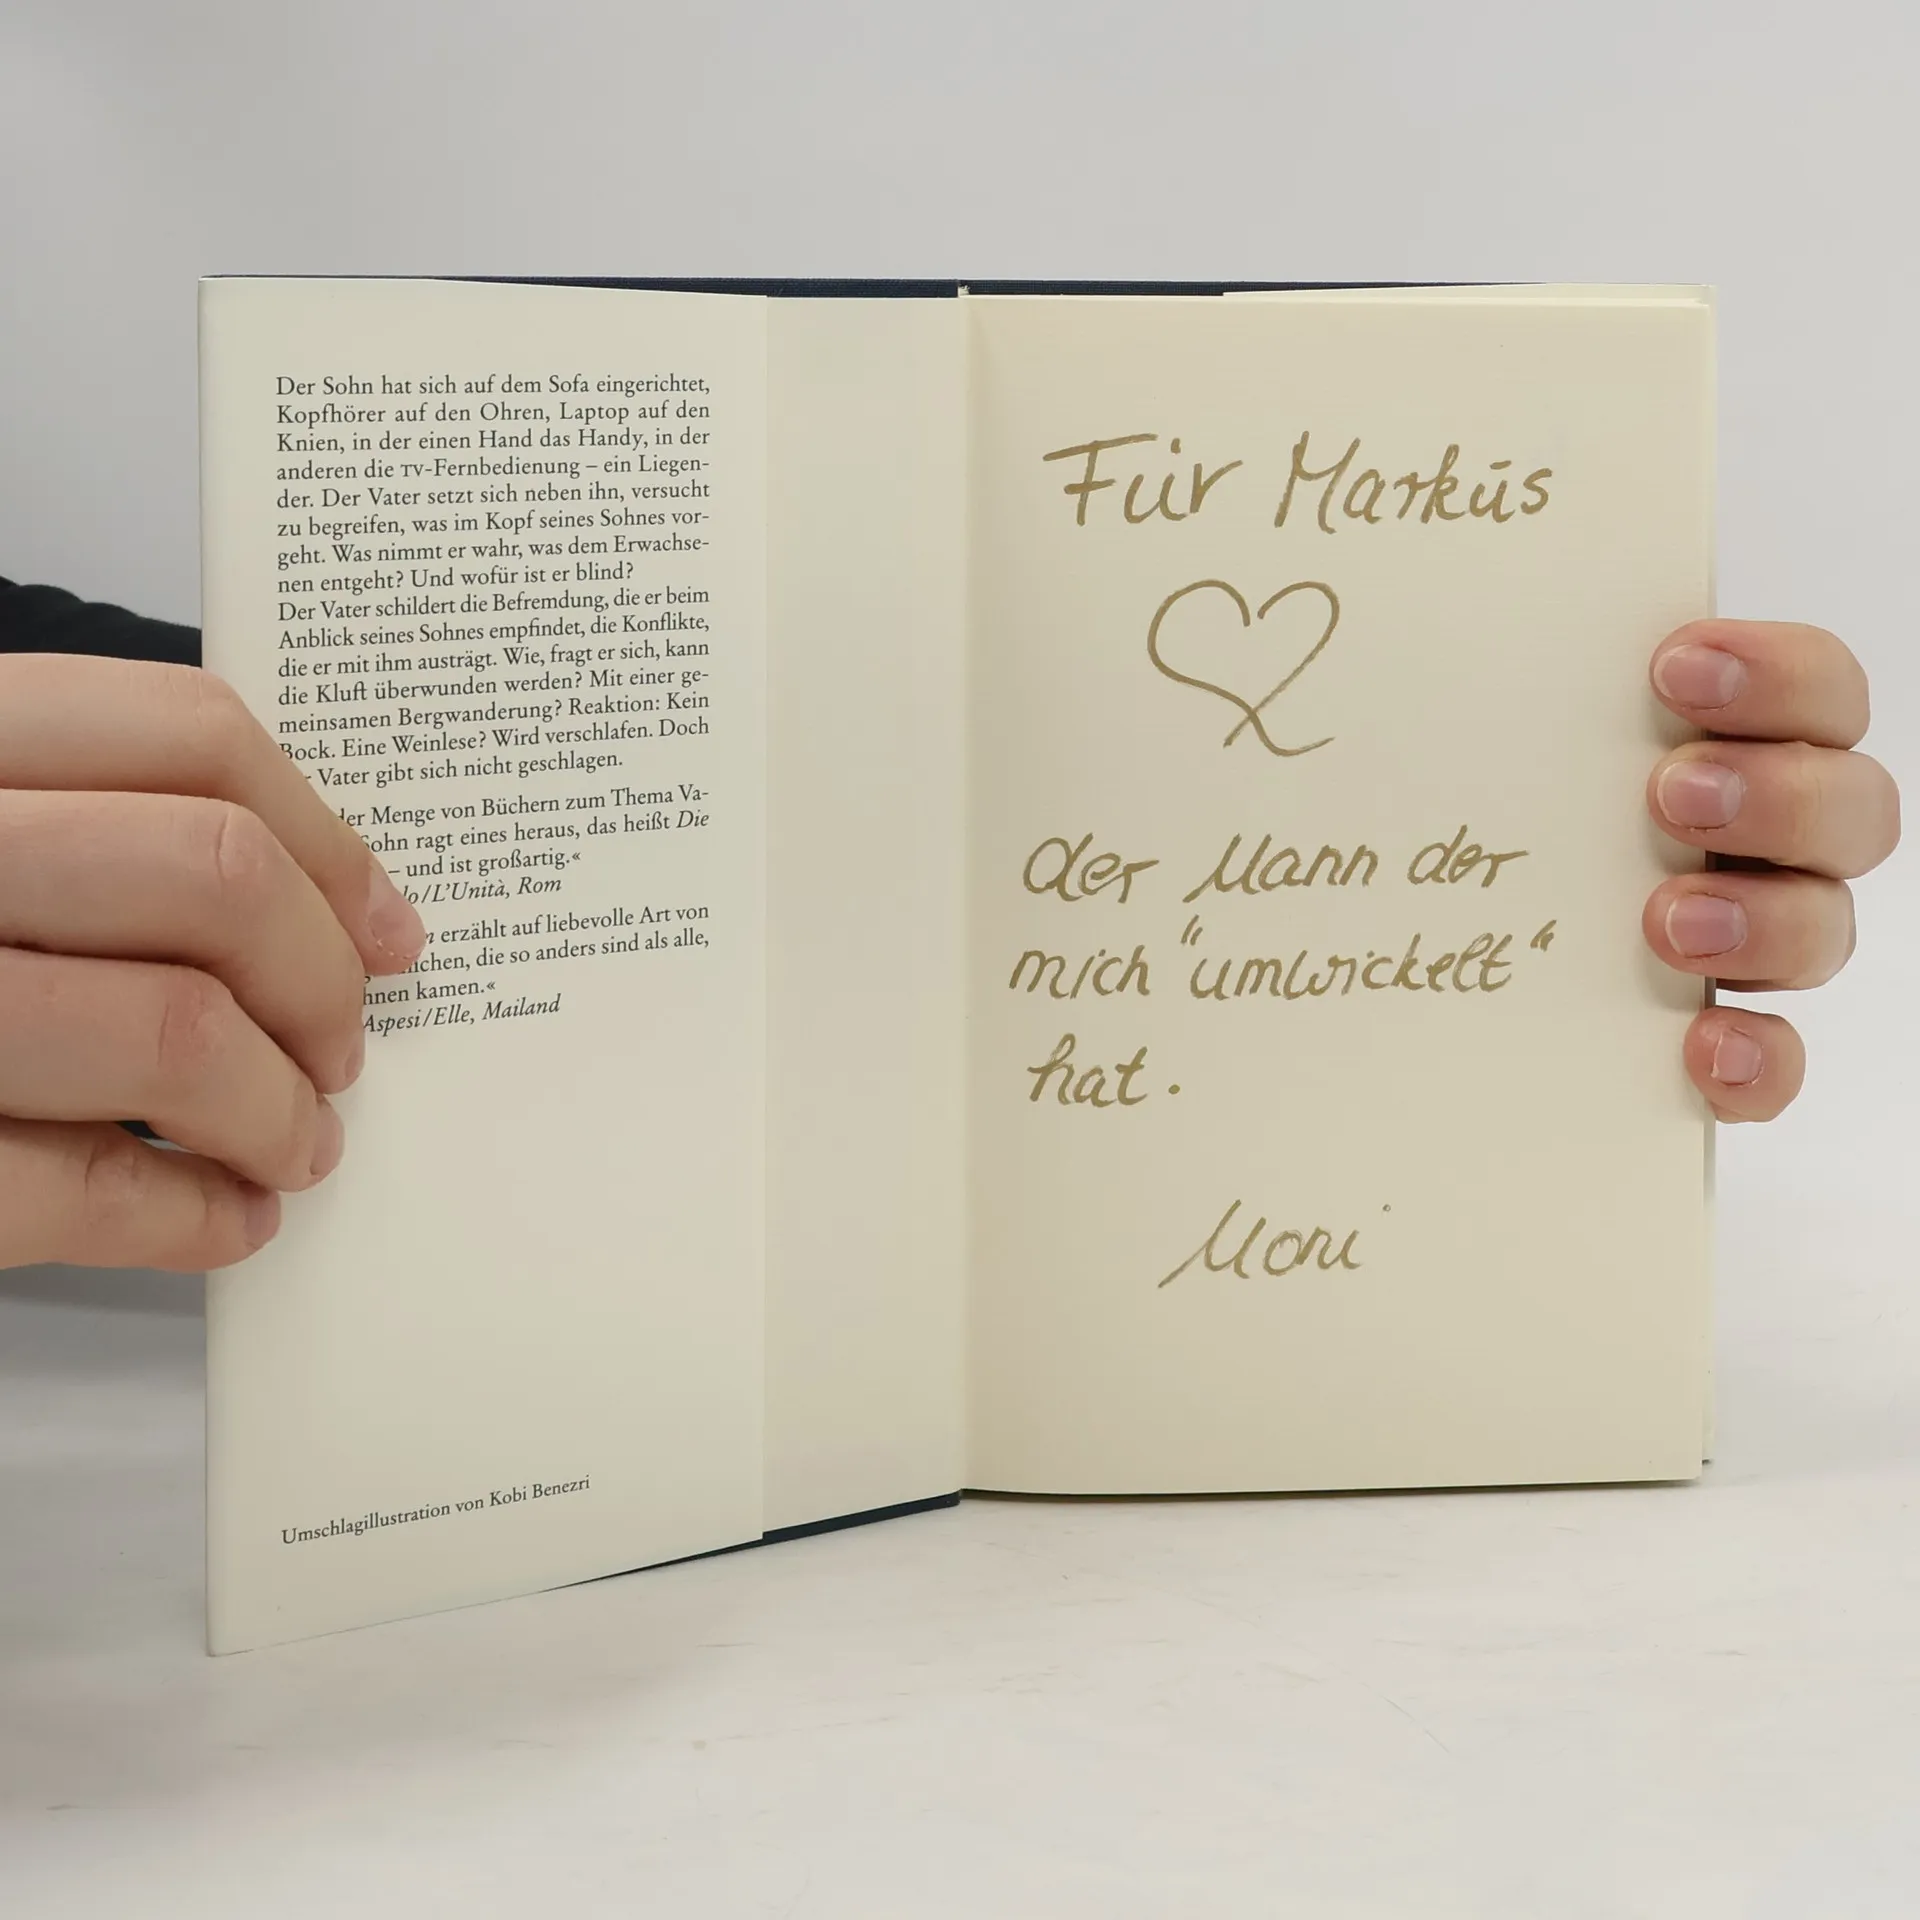 Der Sohn hat sich auf dem Sofa eingerichtet,
Kopfhörer auf den Ohren, Laptop auf den
Knien, in der einen Hand das Handy, in der
anderen die TV-Fernbedienung – ein Liegen-
der. Der Vater setzt sich neben ihn, versucht
zu begreifen, was im Kopf seines Sohnes vor-
geht. Was nimmt er wahr, was dem Erwachse-
nen entgeht? Und wofür ist er blind?
Der Vater schildert die Befremdung, die er beim
Anblick seines Sohnes empfindet, die Konflikte,
die er mit ihm austrägt. Wie, fragt er sich, kann
die Kluft überwunden werden? Mit einer ge-
meinsamen Bergwanderung? Reaktion: Kein
Bock. Eine Weinlese? Wird verschlafen. Doch
Vater gibt sich nicht geschlagen.
der Menge von Büchern zum Thema Va-
Sohn ragt eines heraus, das heißt Die
– und ist großartig.«
/L'Unità, Rom
erzählt auf liebevolle Art von
die so anders sind als alle,
kamen.«
Aspesi/Elle, Mailand
Umschlagillustration von Kobi Benezri
Für Markus
der Mann der
mich "umwickelt"
hat.
Moni